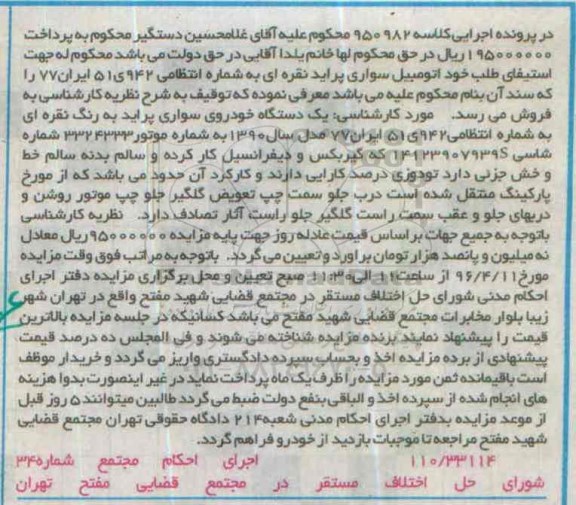 در پرونده اجرایی کلاسه ۹۵۰۹۸۲ محکوم علیه آقای غلامحسین دستگیر محکوم به پرداخت
۱۹۵۰۰۰۰۰۰ ریال در حق محکوم لها خانم یلدا آقایی در حق دولت می باشد محکوم له جهت
استیفای طلب خود اتومبیل سواری پراید نقره ای به شماره انتظامی ۹۴۲ی۵۱ ایران۷۷ را
که سند آن بنام محکوم علیه می باشد معرفی نموده که توقیف به شرح نظریه کارشناسی به
فروش می رسد. مورد کارشناسی: یک دستگاه خودروی سواری پراید به رنگ نقره ای
به شماره انتظامی۹۴۲ی۵۱ ایران۷۷ مدل سال۱۳۹۰ به شماره موتور۳۳۲۴۳۳۳ شماره
شاسی ۱۴۱۲۳۹۰۷۹۳۹S که گیربکس و دیفرانسیل کار کرده و سالم بدنه سالم خط
و خش جزئی دارد تودوزی درصد کارایی دارند و کارکرد آن حدود می باشد که از مورخ
پارکینگ منتقل شده است درب جلو سمت چپ تعویض گلگیر جلو چپ موتور روشن و
دربهای جلو و عقب سمت راست گلگیر جلو راست آثار تصادف دارد. نظریه کارشناسی
باتوجه به جمیع جهات بر اساس قیمت عادله روز جهت پایه مزایده ۹۵۰۰۰۰۰۰ ریال معادل
نه میلیون و پانصد هزار تومان براورد و تعیین می گردد. باتوجه به مراتب فوق وقت مزایده
مورخ۹۶/۴/۱۱ از ساعت۱۱ الی۱۱:۳۰ صبح تعیین و محل برگزاری مزایده دفتر اجرای
احکام مدنی شورای حل اختلاف مستقر در مجتمع قضایی شهید مفتح واقع در تهران شهر
زیبا بلوار مخابرات مجتمع قضایی شهید مفتح می باشد کسانیکه در جلسه مزایده بالاترین
قیمت را پیشنهاد نمایند برنده مزایده شناخته می شوند و فی المجلس ده درصد قیمت
پیشنهادی از برده مزایده اخذ و بحساب سپرده دادگستری واریز می گردد و خریدار موظف
است باقیمانده ثمن مورد مزایده را ظرف یک ماه پرداخت نماید در غیر اینصورت بدوا هزینه
های انجام شده از سپرده اخذ و الباقی بنفع دولت ضبط می گردد طالبین میتوانند ۵ روز قبل
از موعد مزایده بدفتر اجرای احکام مدنی شعبه۲۱۴ دادگاه حقوقی تهران مجتمع قضایی
شهید مفتح مراجعه تا موجبات بازدید از خودرو فراهم گردد.
۱۱۰/۳۳۱۱۴ اجرای احکام مجتمع شماره۳۴
شورای حل اختلاف مستقر در مجتمع قضایی مفتح تهران